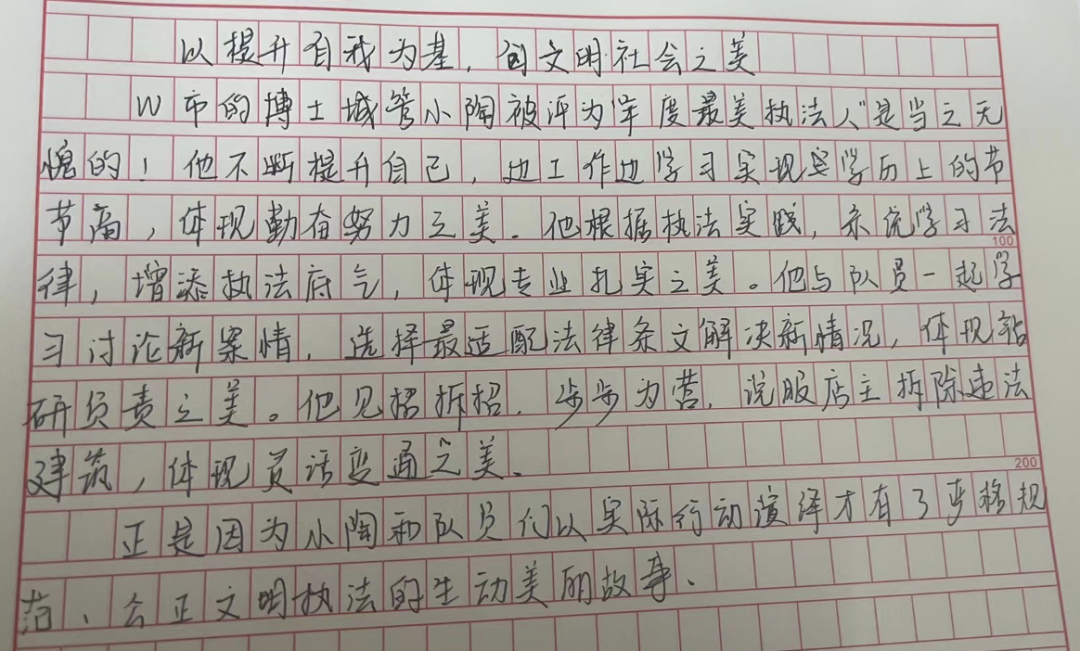 以提升自我为基，创文明社会之美
W市的博士城管小陶被评为年度最美执法人"是当之无
愧的！他不断提升自己，边工作边学习实现学历上的节
节高，体现勤奋努力之美．他根据执法实践，系统学习法
100
律，增添执法底气，体现专业扎实之美。他与队员一起学
习讨论新案情，选择最适配法律条文解决新情况，体现钻
研负责之美。他见招拆招，步步为营，说服店主拆除违法
200
建筑，体现灵活变通之美．
正是因为小陶和队员们以实际行动演绎才有了严格规
范、公正文明执法的生动美丽故事．